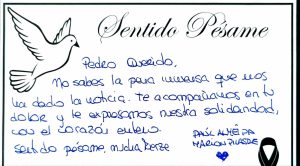 Sentido Pésame
Pedro Querido,
No sabes la pena inmensa que nos
ha dado la noticia. Te acompañamos en tu
dolor y te expresamos nuestra solidaridad,
con el corazón entero.
Sentido pésame, mucha fuerza
PAÚL ALMEIDA
MARION